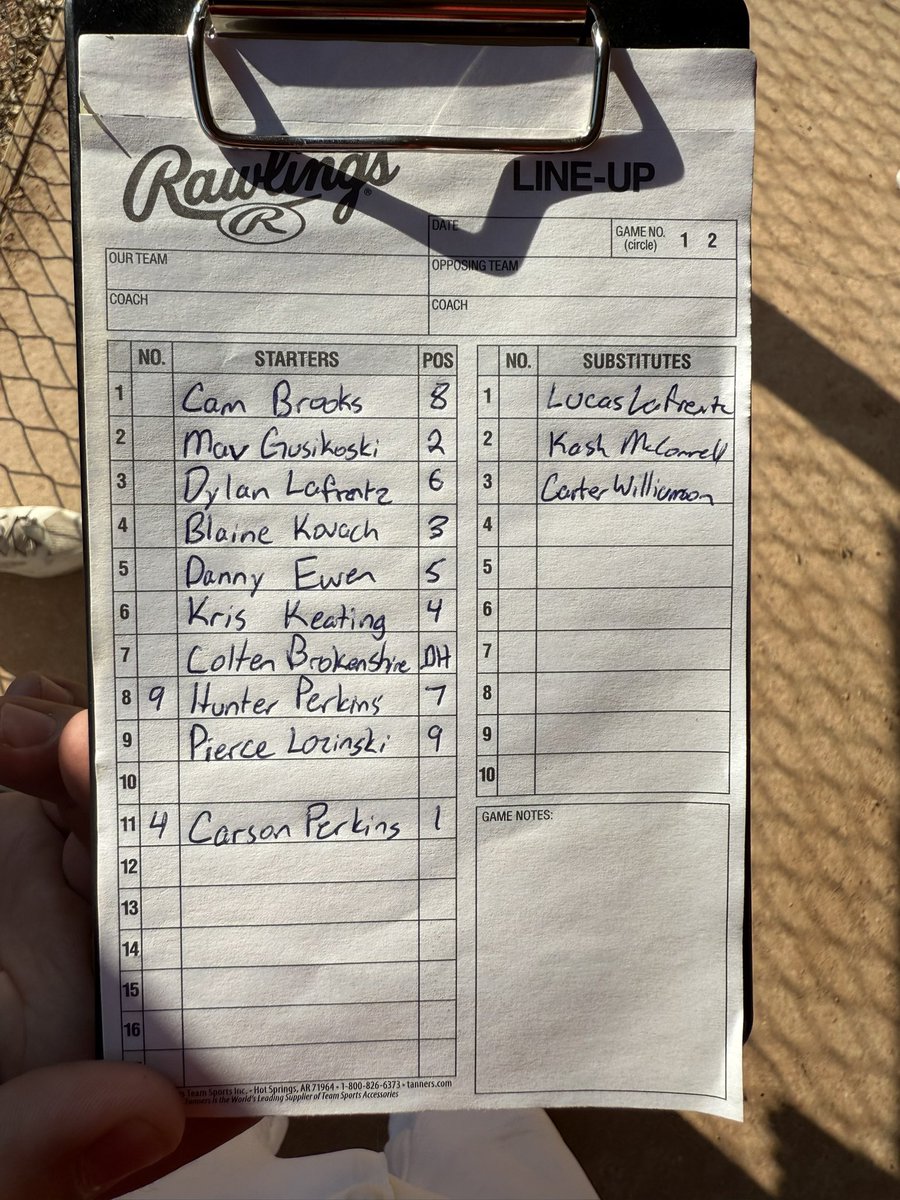 Rawlings®
R
LINE-UP
DATE
GAME NO. (circle) 1 2
OUR TEAM
OPPOSING TEAM
COACH
COACH
NO. STARTERS POS
1 Cam Brooks 8
2 Mav Gusikoski 2
3 Dylan Lafrentz 6
4 Blaine Kovach 3
5 Danny Ewen 5
6 Kris Keating 4
7 Colten Brokenshire DH
8 9 Hunter Perkins 7
9 Pierce Lozinski 9
10
11 4 Carson Perkins 1
12
13
14
15
16
NO. SUBSTITUTES
1 Lucas Lafrentz
2 Kash McConnell
3 Carter Williamson
4
5
6
7
8
9
10
GAME NOTES:
Team Sports Inc. • Hot Springs, AR 71964 • 1-800-826-6373 • tanners.com
Tanners is the World's Leading Supplier of Team Sports Accessories